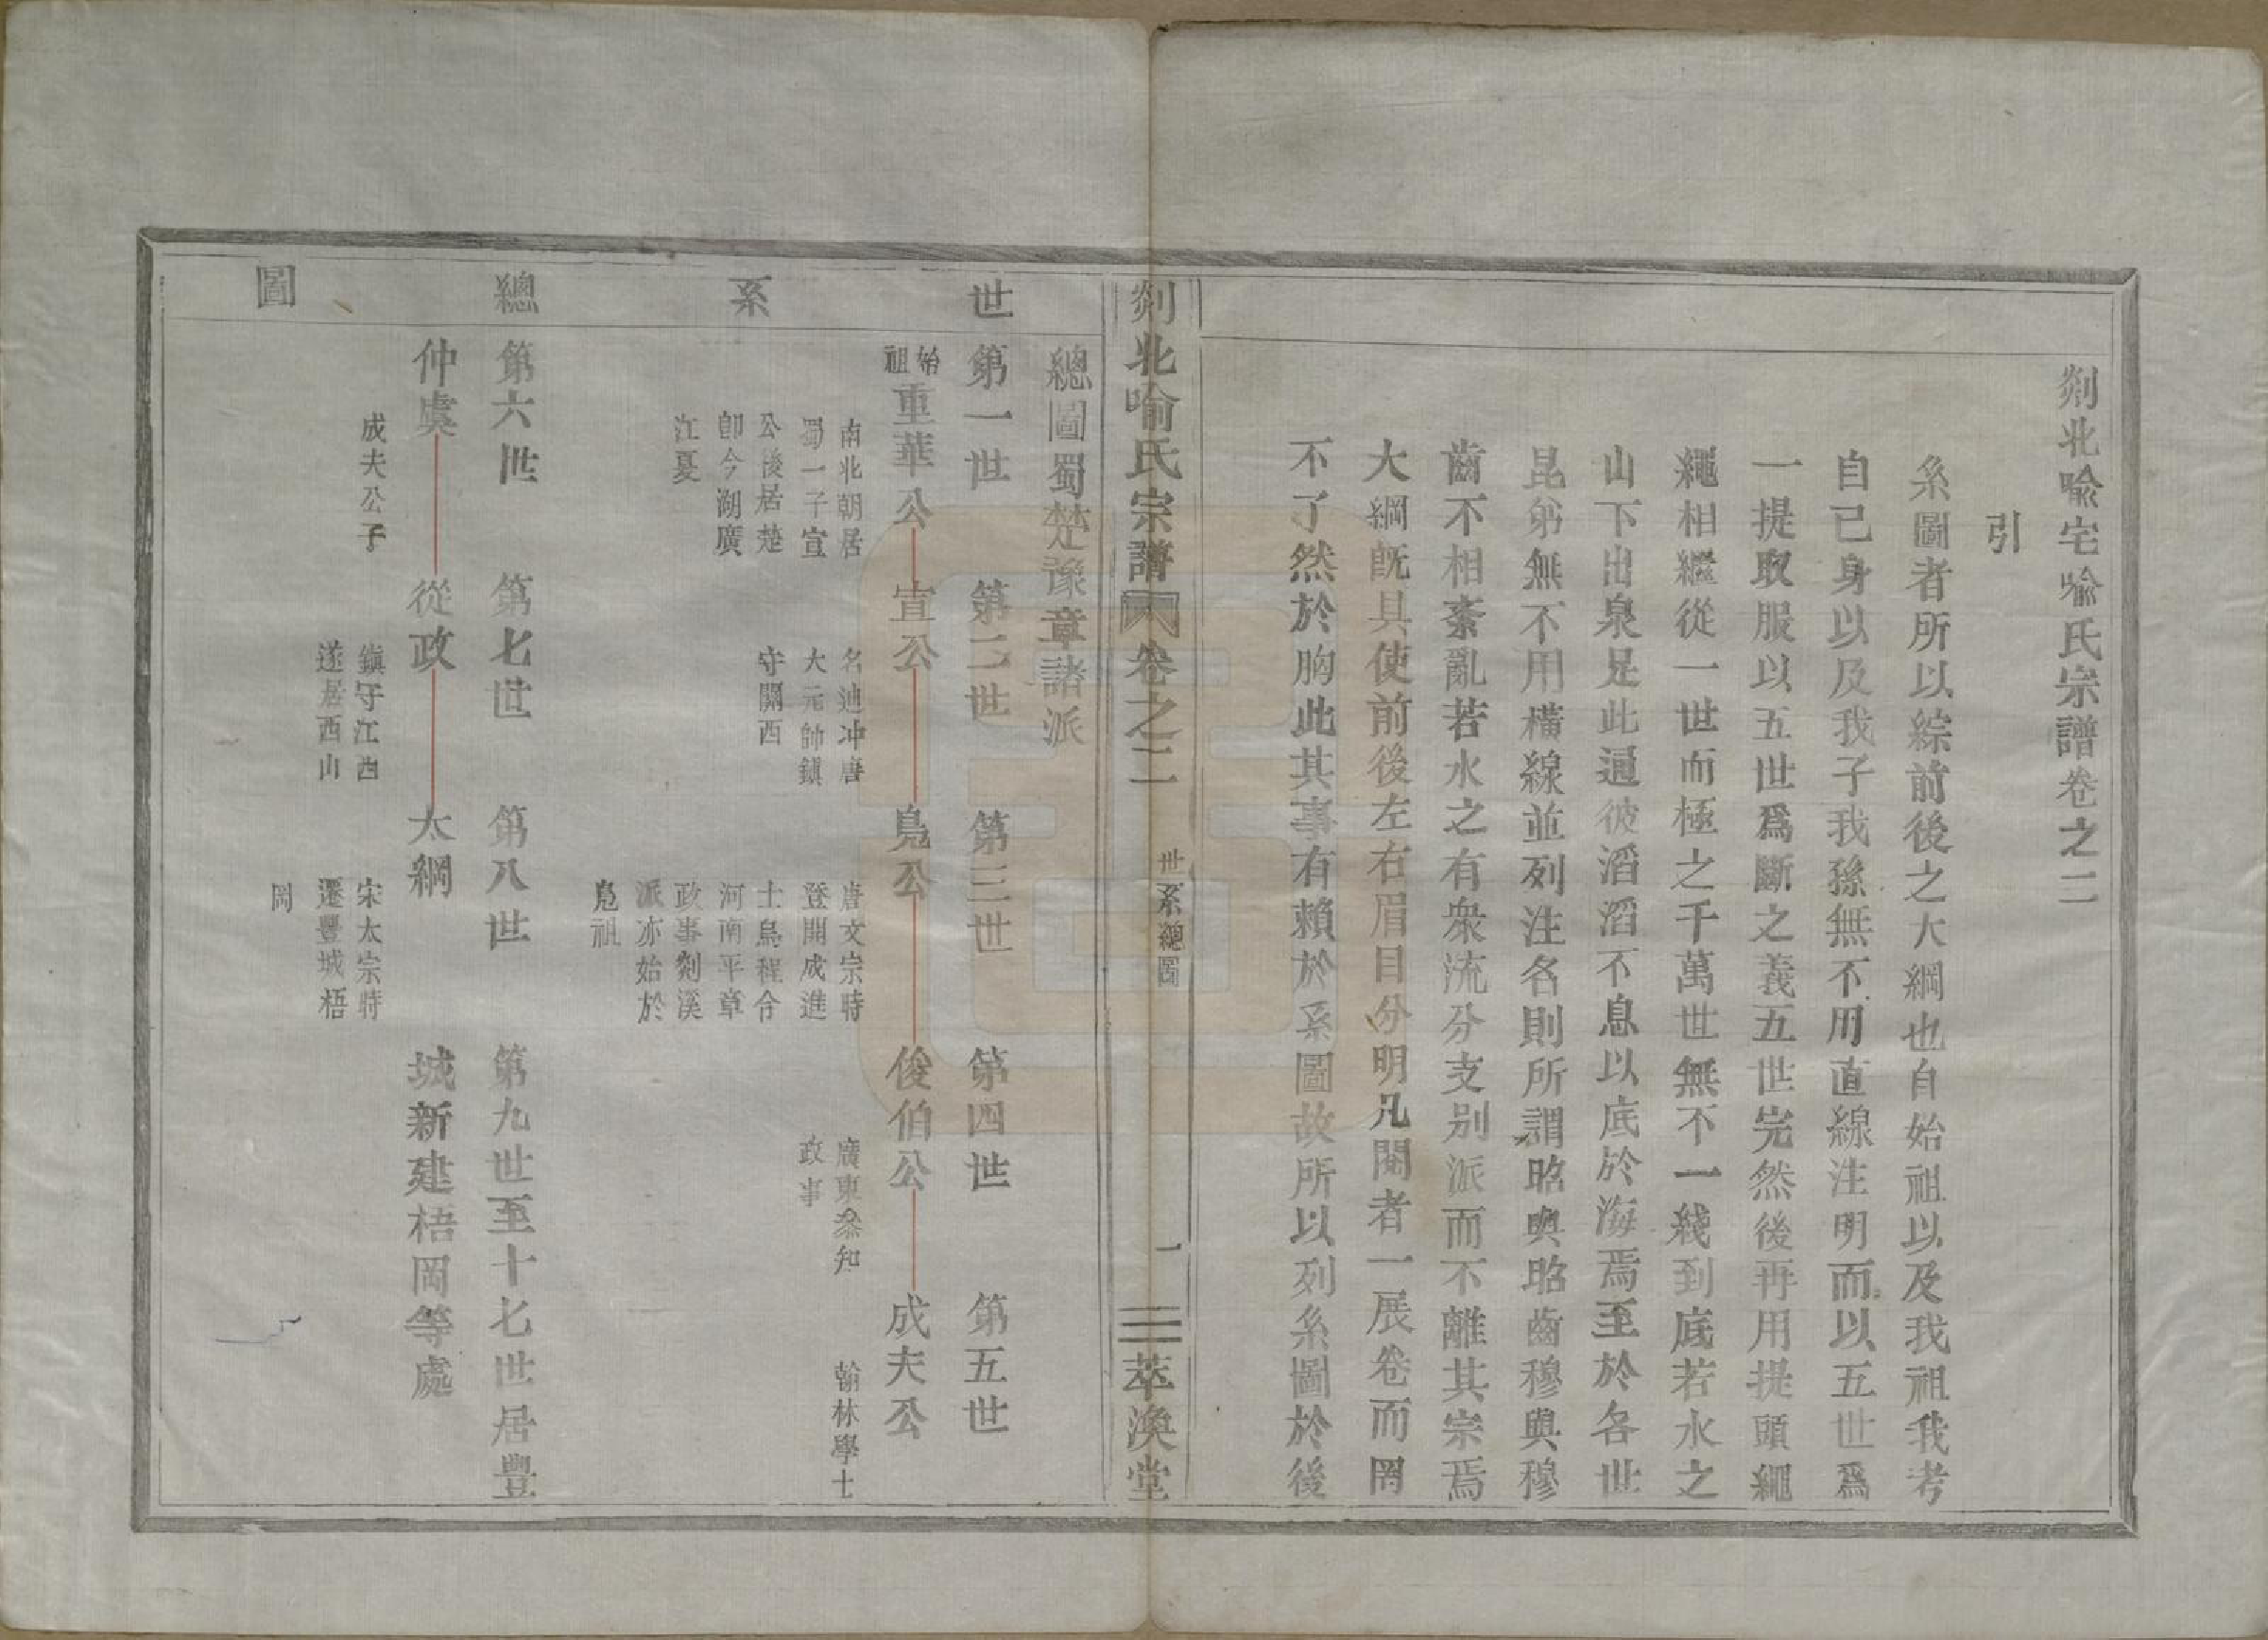 剡北喩宅喩氏宗譜卷之二
引
系圖者所以綜前後之大綱也自始祖以及我祖我考
自已身以及我子我孫無不用直線注明而以五世爲
一提取服以五世爲斷之義五世完然後再用提頭繩
繩相繼從一世而極之千萬世無不一綫到底若水之
山下出泉足此通彼滔滔不息以底於海焉至於各世
昆弟無不用橫線並列注名則所謂昭與昭齒穆與穆
齒不相紊亂若水之有衆流分支别派而不離其宗焉
大綱旣具使前後左右眉目分明凡閱者一展卷而罔
不了然於胸此其事有賴於系圖故所以列系圖於後
剡北喻氏宗譜 卷之二 世系總圖 一 萃渙堂
世系總圖
總圖蜀楚豫章諸派
第一世 第二世 第三世 第四世 第五世
始祖重華公 宣公 鳧公 俊伯公 成夫公
南北朝居
蜀一子宣
公後居楚
卽今湖廣
江夏
名迪冲唐
大元帥鎮
守關西
唐文宗時
登開成進
士烏程令
河南平章
政事剡溪
派亦始於
鳧祖
廣東叅知
政事
翰林學士
第六世 第七世 第八世 第九世至十七世居豐
仲虞 從政 太綱 城新建梧岡等處
成夫公子
鎮守江西
遂居西山
宋太宗時
遷豐城梧
岡